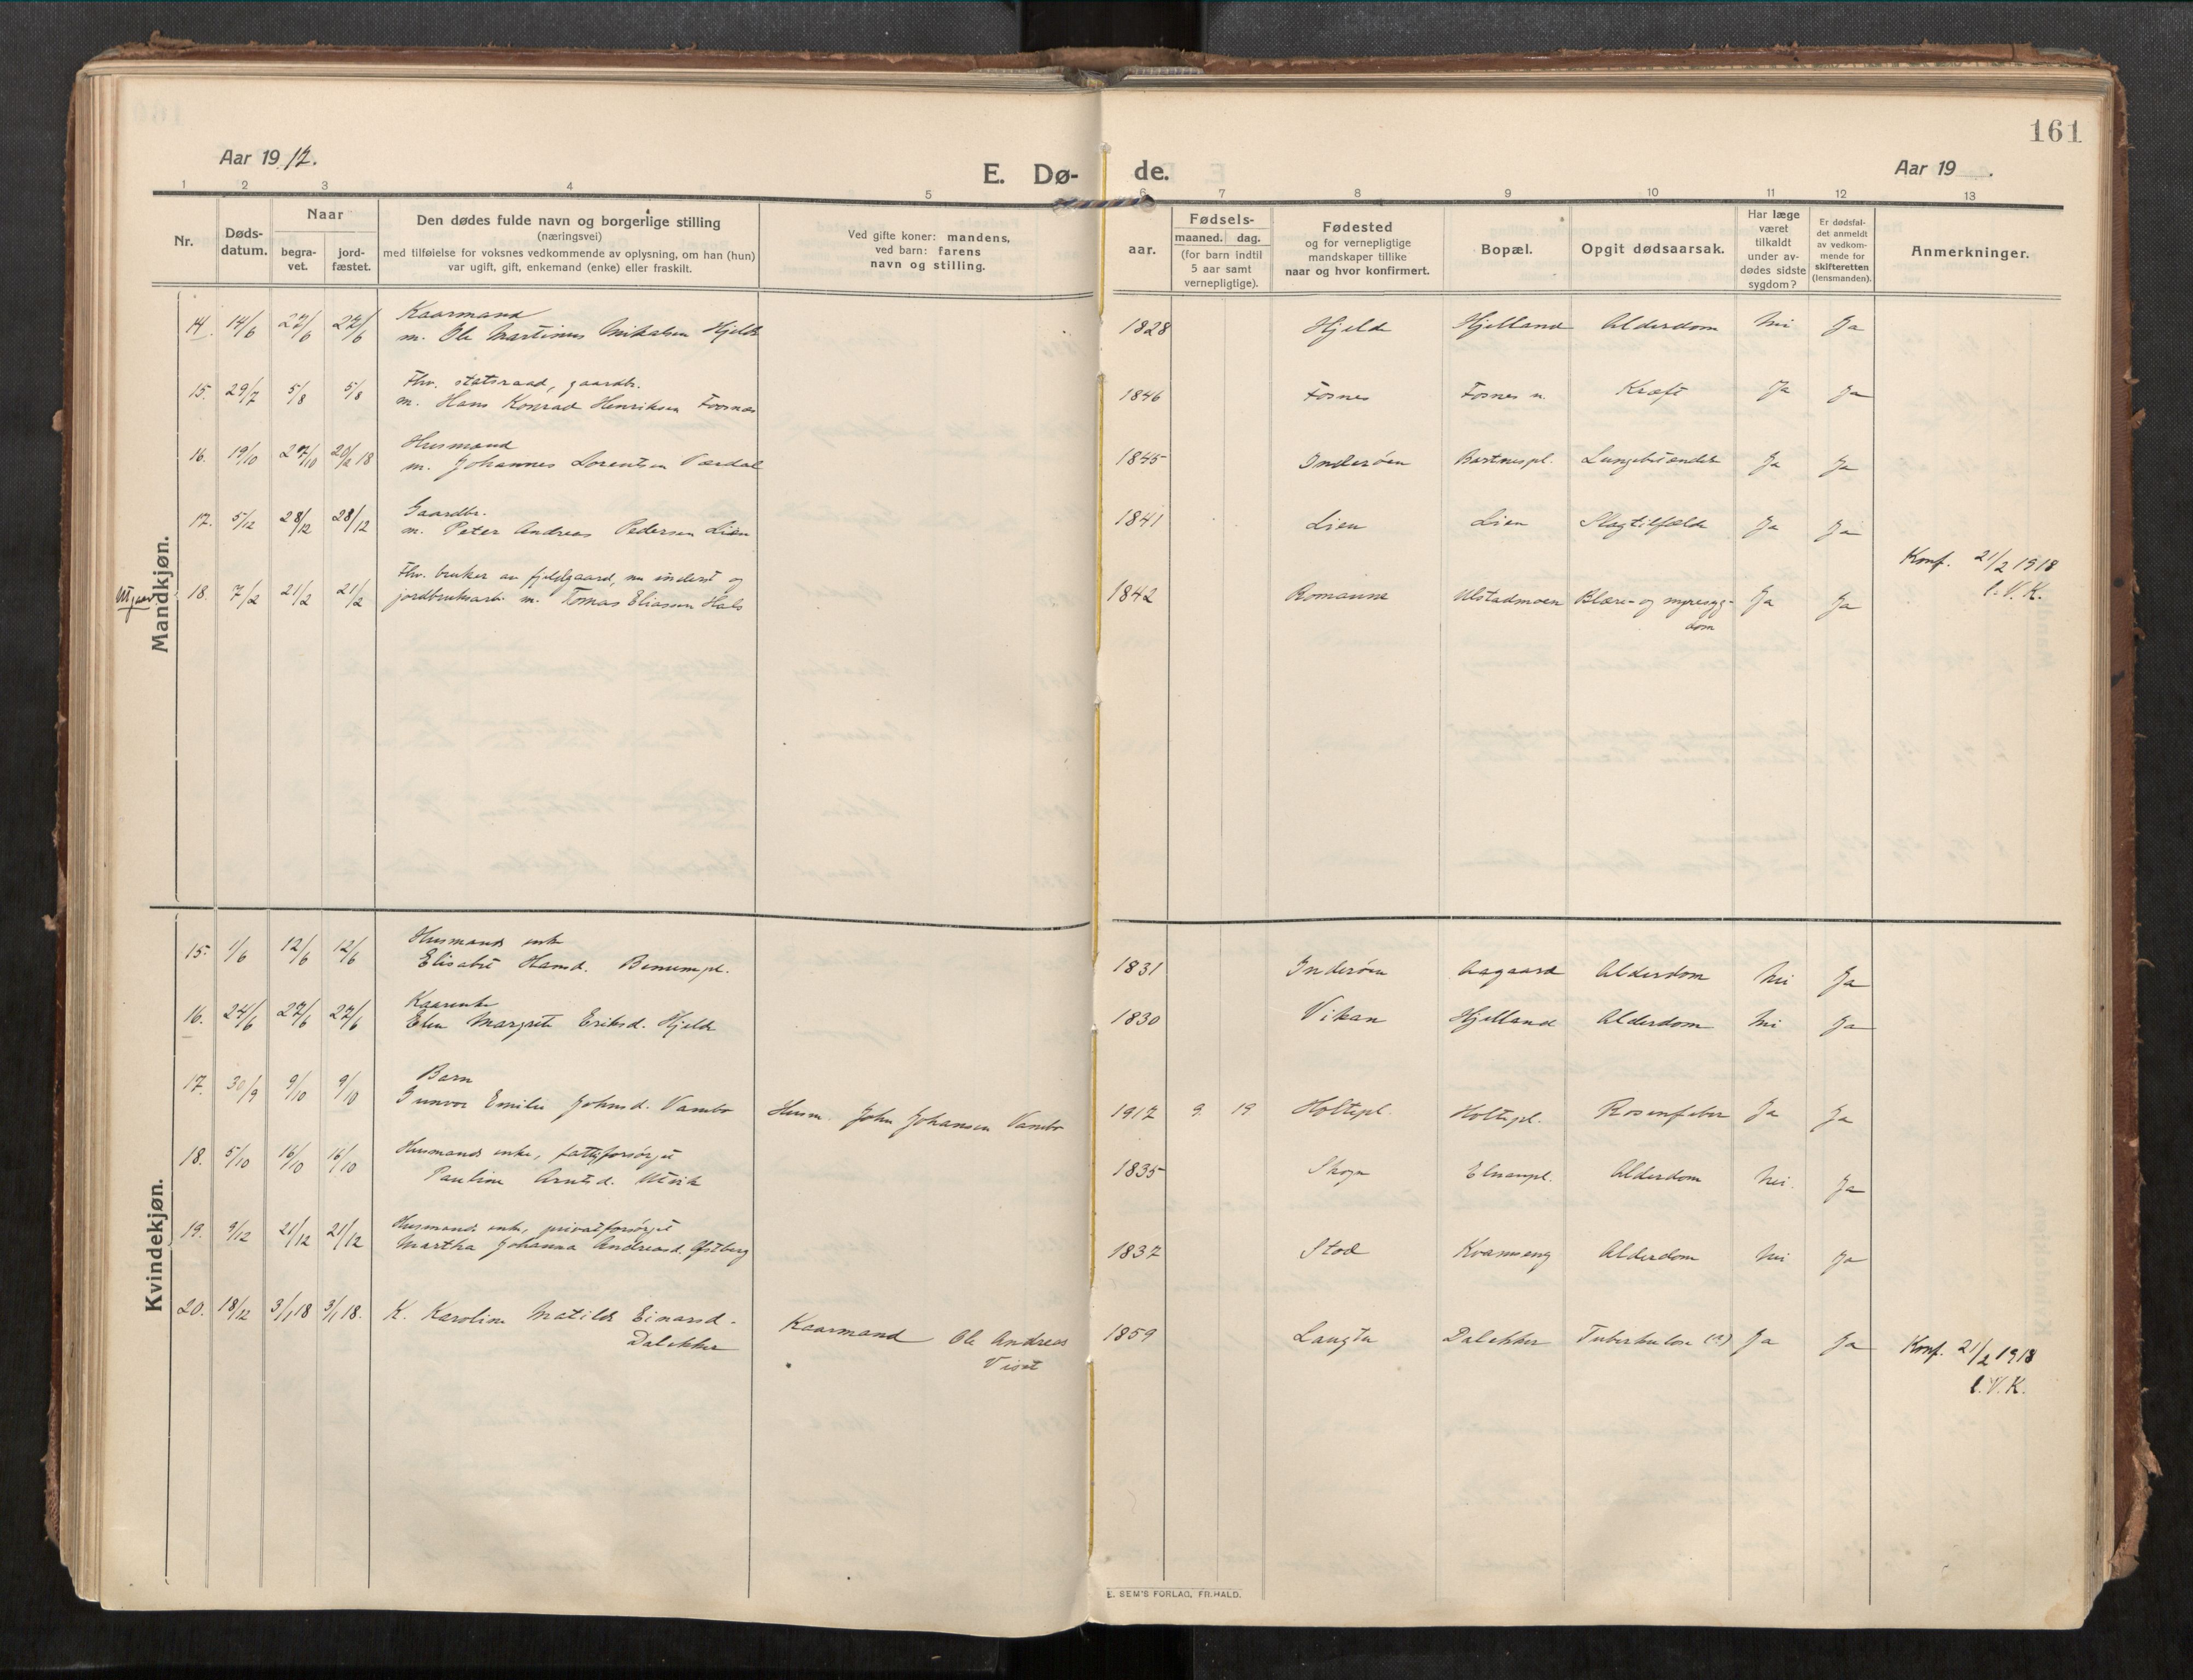 161
Aar 19 17.
E. Dø-
de.
Aar 19 .
1 2 3 4 5 6 7 8 9 10 11 12 13
Nr.
Døds-
datum.
Naar
begra-
vet.
jord-
fæstet.
Den dødes fulde navn og borgerlige stilling
(næringsvei)
med tilføielse for voksnes vedkommende av oplysning, om han (hun)
var ugift, gift, enkemand (enke) eller fraskilt.
Ved gifte koner: mandens,
ved barn: farens
navn og stilling.
aar.
Fødsels-
maaned. dag.
(for barn indtil
5 aar samt
vernepligtige).
Fødested
og for vernepligtige
mandskaper tillike
naar og hvor konfirmert.
Bopæl.
Opgit dødsaarsak.
Har læge
været
tilkaldt
under av-
dødes sidste
sygdom?
Er dødsfal-
det anmeldt
av vedkom-
mende for
skifteretten
(lensmanden).
Anmerkninger.
Mandkjøn.
Kaarmand
14. 14/6 27/6 27/6 m. Ole Martinus Mikalsen Hjelde 1828 Hjelde Hjelland Alderdom Nei Ja
Fhv. statsraad, gaardbr.
15. 29/7 5/8 5/8 m. Hans Konrad Henriksen Foosnæs 1846 Fosnes Fosnes n. Kræft Ja Ja
Husmand
16. 19/10 27/10 20/2 18 m. Johannes Lorentsen Værdal 1845 Inderöen Bartnespl. Lungebetændelse Ja Ja
Gaardbr.
17. 5/12 28/12 28/12 m. Peter Andreas Pedersen Lien 1841 Lien Lien Slagtilfælde Ja Ja
Utgaar
Fhv. bruker av fjeldgaard, nu inderst og
18. 7/2 21/2 21/2 jordbruksarb. m. Tomas Eliassen Hals 1842 Romanuse Ulstadmoen Blære- og nyresyg-
dom Ja Ja
Konf. 21/2 1918
l. V. K.
Kvindekjøn.
Husmands enke
15. 1/6 12/6 12/6 Elisabet Hansd. Benumpl. 1831 Inderöen Aagaard Alderdom Nei Ja
Kaarenke
16. 24/6 27/6 27/6 Elen Margrete Eriksd. Hjelde 1830 Vikan Hjelland Alderdom Nei Ja
Barn
17. 30/9 9/10 9/10 Gunvor Emilie Johnsd. Vambo Husm. John Johansen Vambo 1917 9. 19 Holtepl. Holtepl. Rosenfeber Ja Ja
Husmands enke, fattigforsørget
18. 5/10 16/10 16/10 Pauline Arntsd. Utvik 1835 Skogn Elnanpl. Alderdom Nei. Ja
Husmands enke, privatforsørget
19. 9/12 21/12 21/12 Martha Johanna Andreasd. Østberg 1837 Stod Kvamseng Alderdom Nei Ja
20. 18/12 3/1 18 3/1 18. K. Karoline Matilde Einarsd.
Dalekker
Kaarmand Ole Andreas
Viset
1859 Langtu Dalekker Tuberkulose (?) Ja Ja
Konf. 21/2 1918
l. V. K.
E. SEM'S FORLAG, FR.HALD.